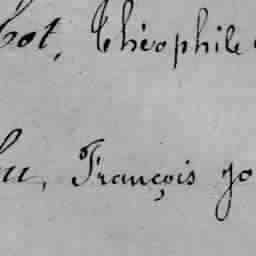 bot, Théophile
u, François jo